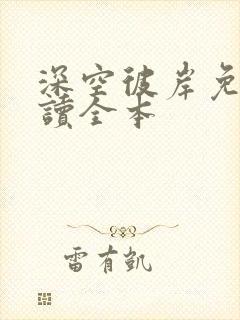 深空彼岸免
讀全本
雷有凱